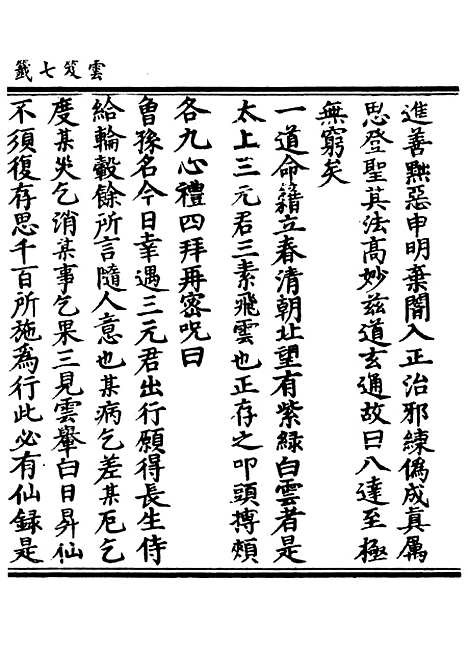 雲笈七籤
進善黜惡申明棄闇入正治邪練僞成真厲
思登聖其法高妙兹道玄通故曰八達至極
無窮矣
一道命籍立春清朝北望有紫綠白雲者是
太上三元君三素飛雲也正存之叩頭搏頰
各九心禮四拜再密呪曰
曾豫名今日幸遇三元君出行願得長生侍
給輪轂餘所言隨人意也某病乞差某厄乞
度某災乞消某事乞果三見雲轝白日昇仙
不須復存思千百所施爲行此必有仙録是